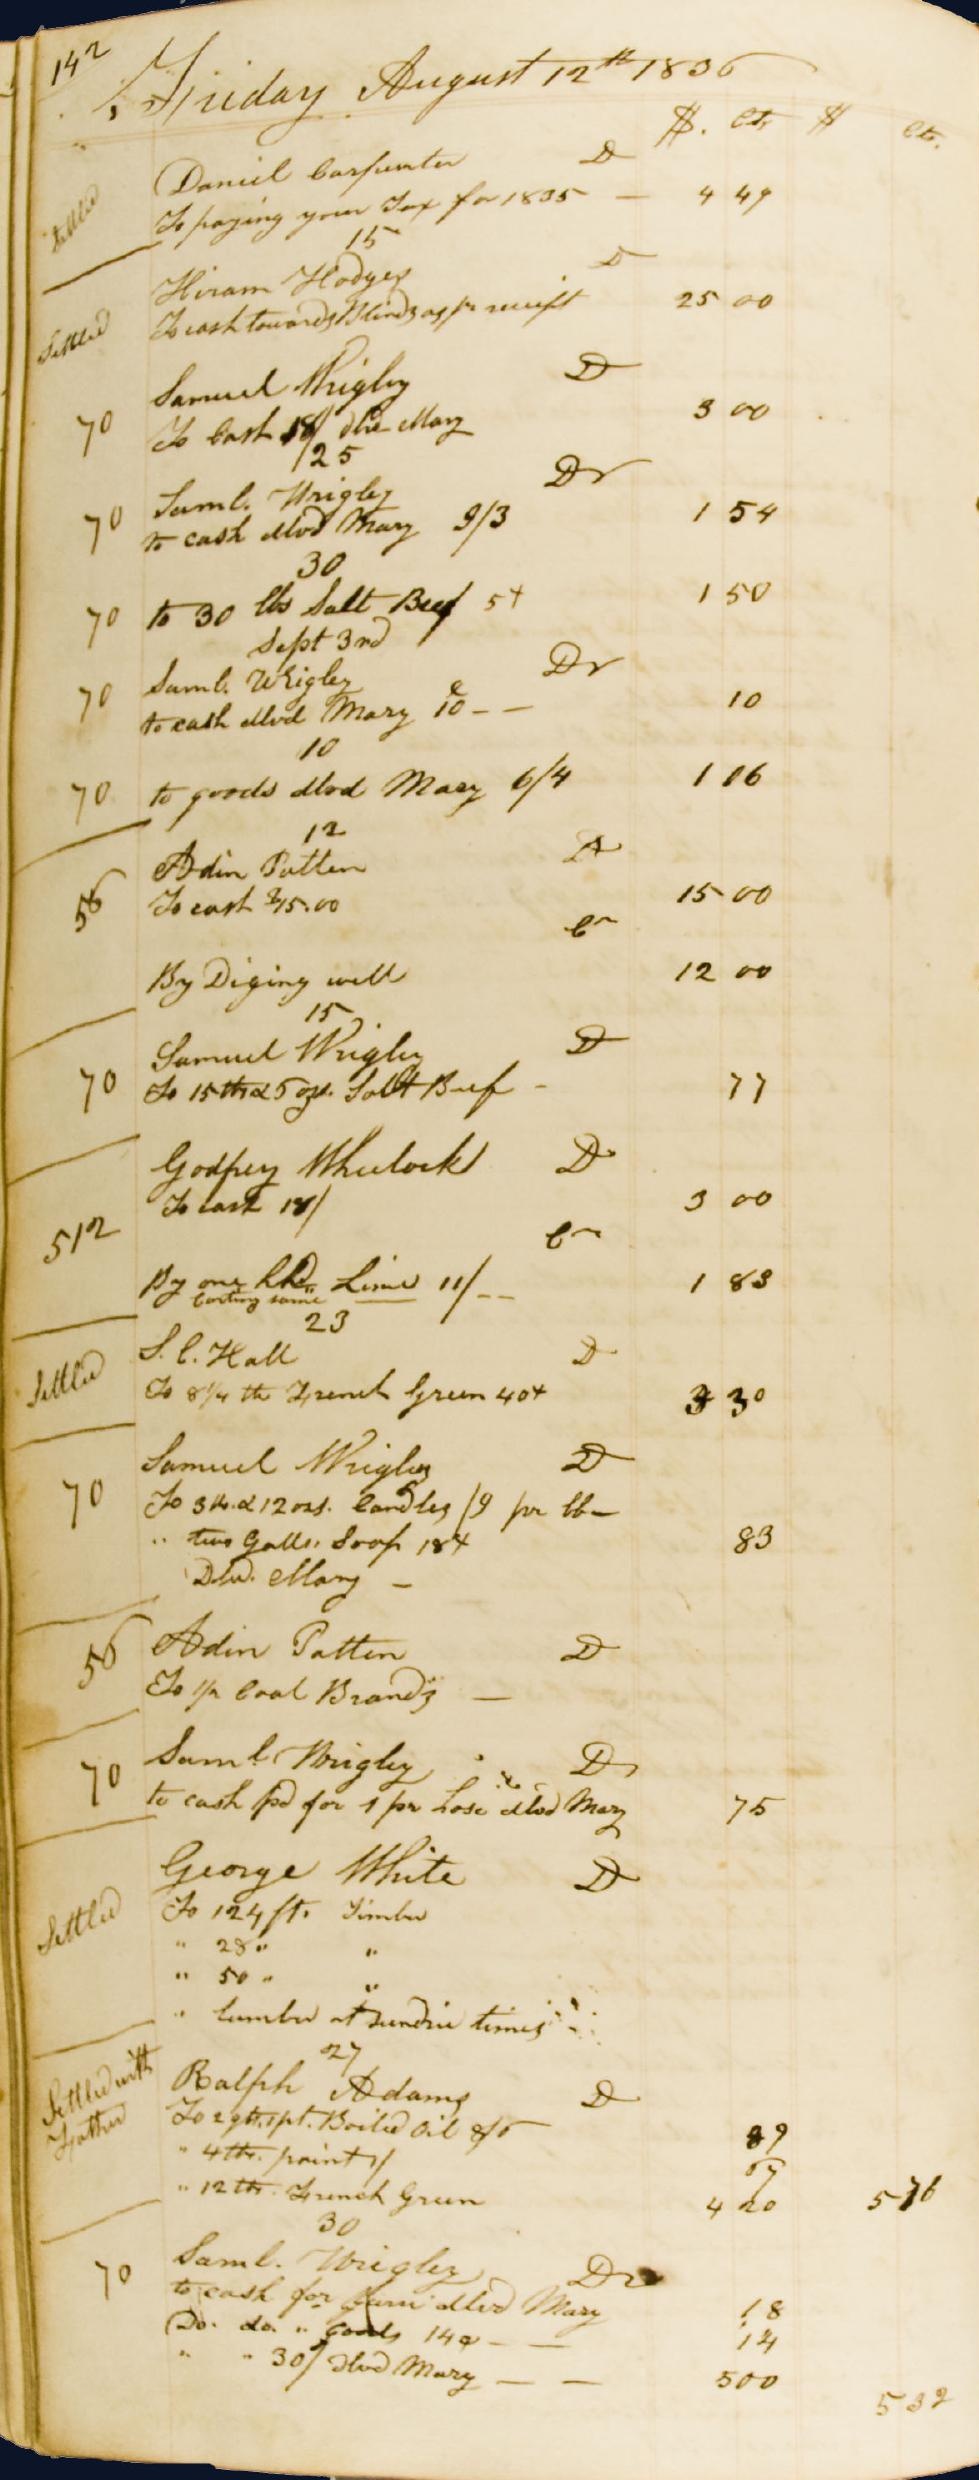 142
Friday August 12th 1836
$. Cts $ Cts.
Settled
Daniel Carpenter D
To paying your Tax for 1835 — 4 49
15
Settled
Hiram Hodges D
To cash towards Blinds as pr receipt 25 00
Samuel Wrigley D
70 To Cash 18/ dld Mary 3 00
25
Saml. Wrigley Dr
70 to cash dlvd Mary 9/3 1 54
30
70 to 30 lbs Salt Beef 5 1 50
Sept 3rd
Saml. Wrigley Dr
70 to cash dlvd Mary 10 - - 10
10
70 to goods dlvd Mary 6/4 1 06
12
Adin Patten D
56 To cash $15.00 15 00
Cr
By Diging well 12 00
15
Samuel Wrigley D
70 To 15 lbs & 5 ozs. Salt Beef - 77
Godfrey Wheelock D
To cash 18/ 3 00
512 Cr
By one hhd Lime 11/ - - 1 83
Carting same
23
S. C. Hall D
Settled To 8 1/4 lbs French Green 40 3 30
Samuel Wrigley D
70 To 3 lb. & 12 ozs. Candles /9 pr lb -
" two Galls. Soap 18 83
Dld. Mary -
56 Adin Patten D
To 1/2 Coal Brands —
70 Saml. Wrigley Dr
to cash pd for 1 pr hose dlvd Mary 75
George White D
Settled To 124 ft. Timber
" 28 " "
" 50 " "
" lumber at sundrie times
27
Settled with Father
Ralph Adams D
To 2 qts. 1 pt. Boiled Oil 8/6 89
" 4 lbs. paint 1/ 67
" 12 lbs. French Green 4 20 5 76
30
70 Saml. Wrigley Dr
to cash for dlvd Mary 18
Do. do. " Goods 14 - — 14
" " 30/ dlvd Mary — — 5 00
5 32